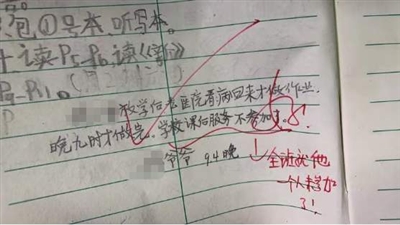 包①号本、听写本。
十读P5-P6读《
P9-P11。
放学后去医院看病回来才做作业。
晚九时才做完。学校课后服务不参加了。
爷爷 9.4晚
全班就他
一个人未参加
了!